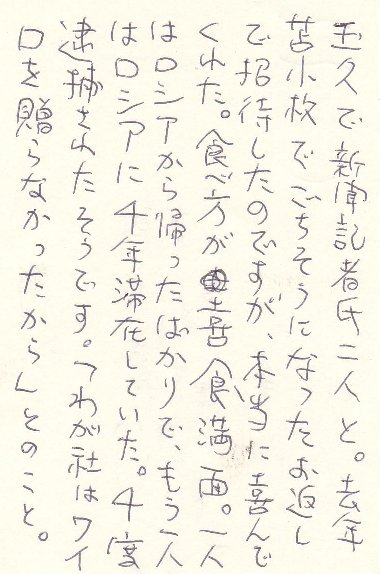 玉久で新聞記者氏二人と。去年
苫小牧でごちそうになったお返し
で招待したのですが、本当に喜んで
くれた。食べ方が喜食満面。一人
はロシアから帰ったばかりで、もう一人
はロシアに4年滞在していた。4度
逮捕されたそうです。「わが社はワイ
ロを贈らなかったから」とのこと。